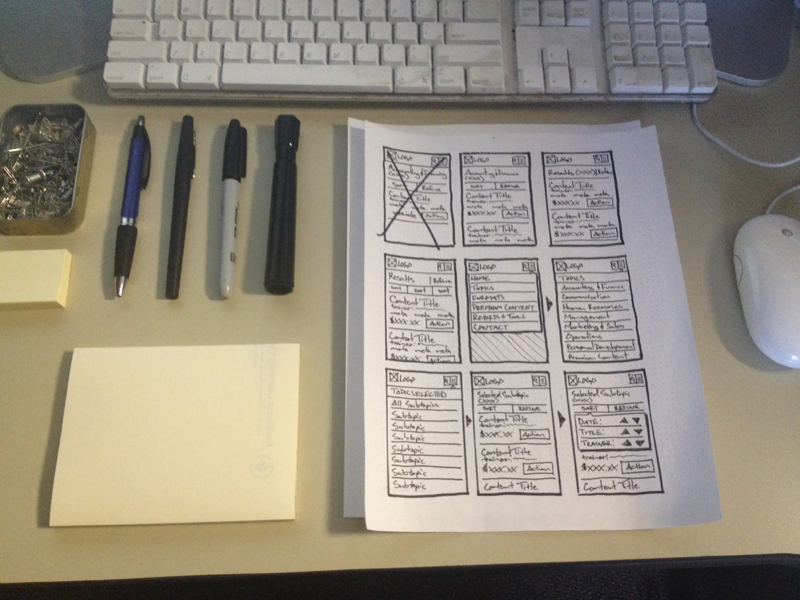 LOGO
Accounting & Finance
(xxxx)
SORT Refine
Content Title
meta meta meta
LOGO
Accounting & Finance
(xxxx)
SORT REFINE
Content Title
trainer
meta meta meta
$XXX.XX Action
Content Title
trainer
meta meta meta
LOGO
Results (xxxx) | Refine
Content Title
trainer
meta meta meta
$XXX.XX Action
Content Title
trainer
meta meta meta
$XXX.XX Action
LOGO
Results | Refine
sort sort sort
Content Title
trainer
meta meta meta
$XXX.XX Action
Content Title
trainer
meta meta meta
$XXX.XX Action
LOGO
HOME
TOPICS
FORMATS
PREMIUM CONTENT
CONTACT
LOGO
TOPICS
Accounting & Finance
Communication
Human Resources
Management
Marketing & Sales
Operations
Personal Development
Premium Content
LOGO
TOPIC SELECTED
All Subtopics
Subtopic
Subtopic
Subtopic
Subtopic
Subtopic
Subtopic
Subtopic
LOGO
Selected Subtopic
(xxxx)
SORT REFINE
Content Title
trainer
$XXX.XX Action
Content Title
trainer
$XXX.XX Action
Content Title
LOGO
Selected Subtopic
(xxxx)
SORT REFINE
DATE: ▲ ▼
TITLE: ▲ ▼
TRAINER: ▲ ▼
trainer
$XXX.XX Action
Content Title